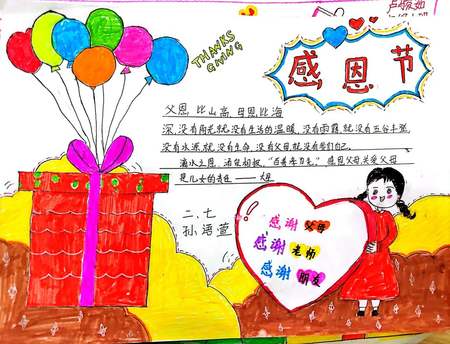 THANKS
GIVING
感恩节
父恩比山高,母恩比海
深,没有阳光就没有生活的温暖,没有雨露就没有五谷丰登,
没有水源,就没有生命,没有父母,就没有我们自己。
滴水之恩,涌泉相报,"百善孝为先",感恩父母关爱父母
是儿女的责任
二、七
孙语萱
感谢 父母
感谢 老师
感谢 朋友